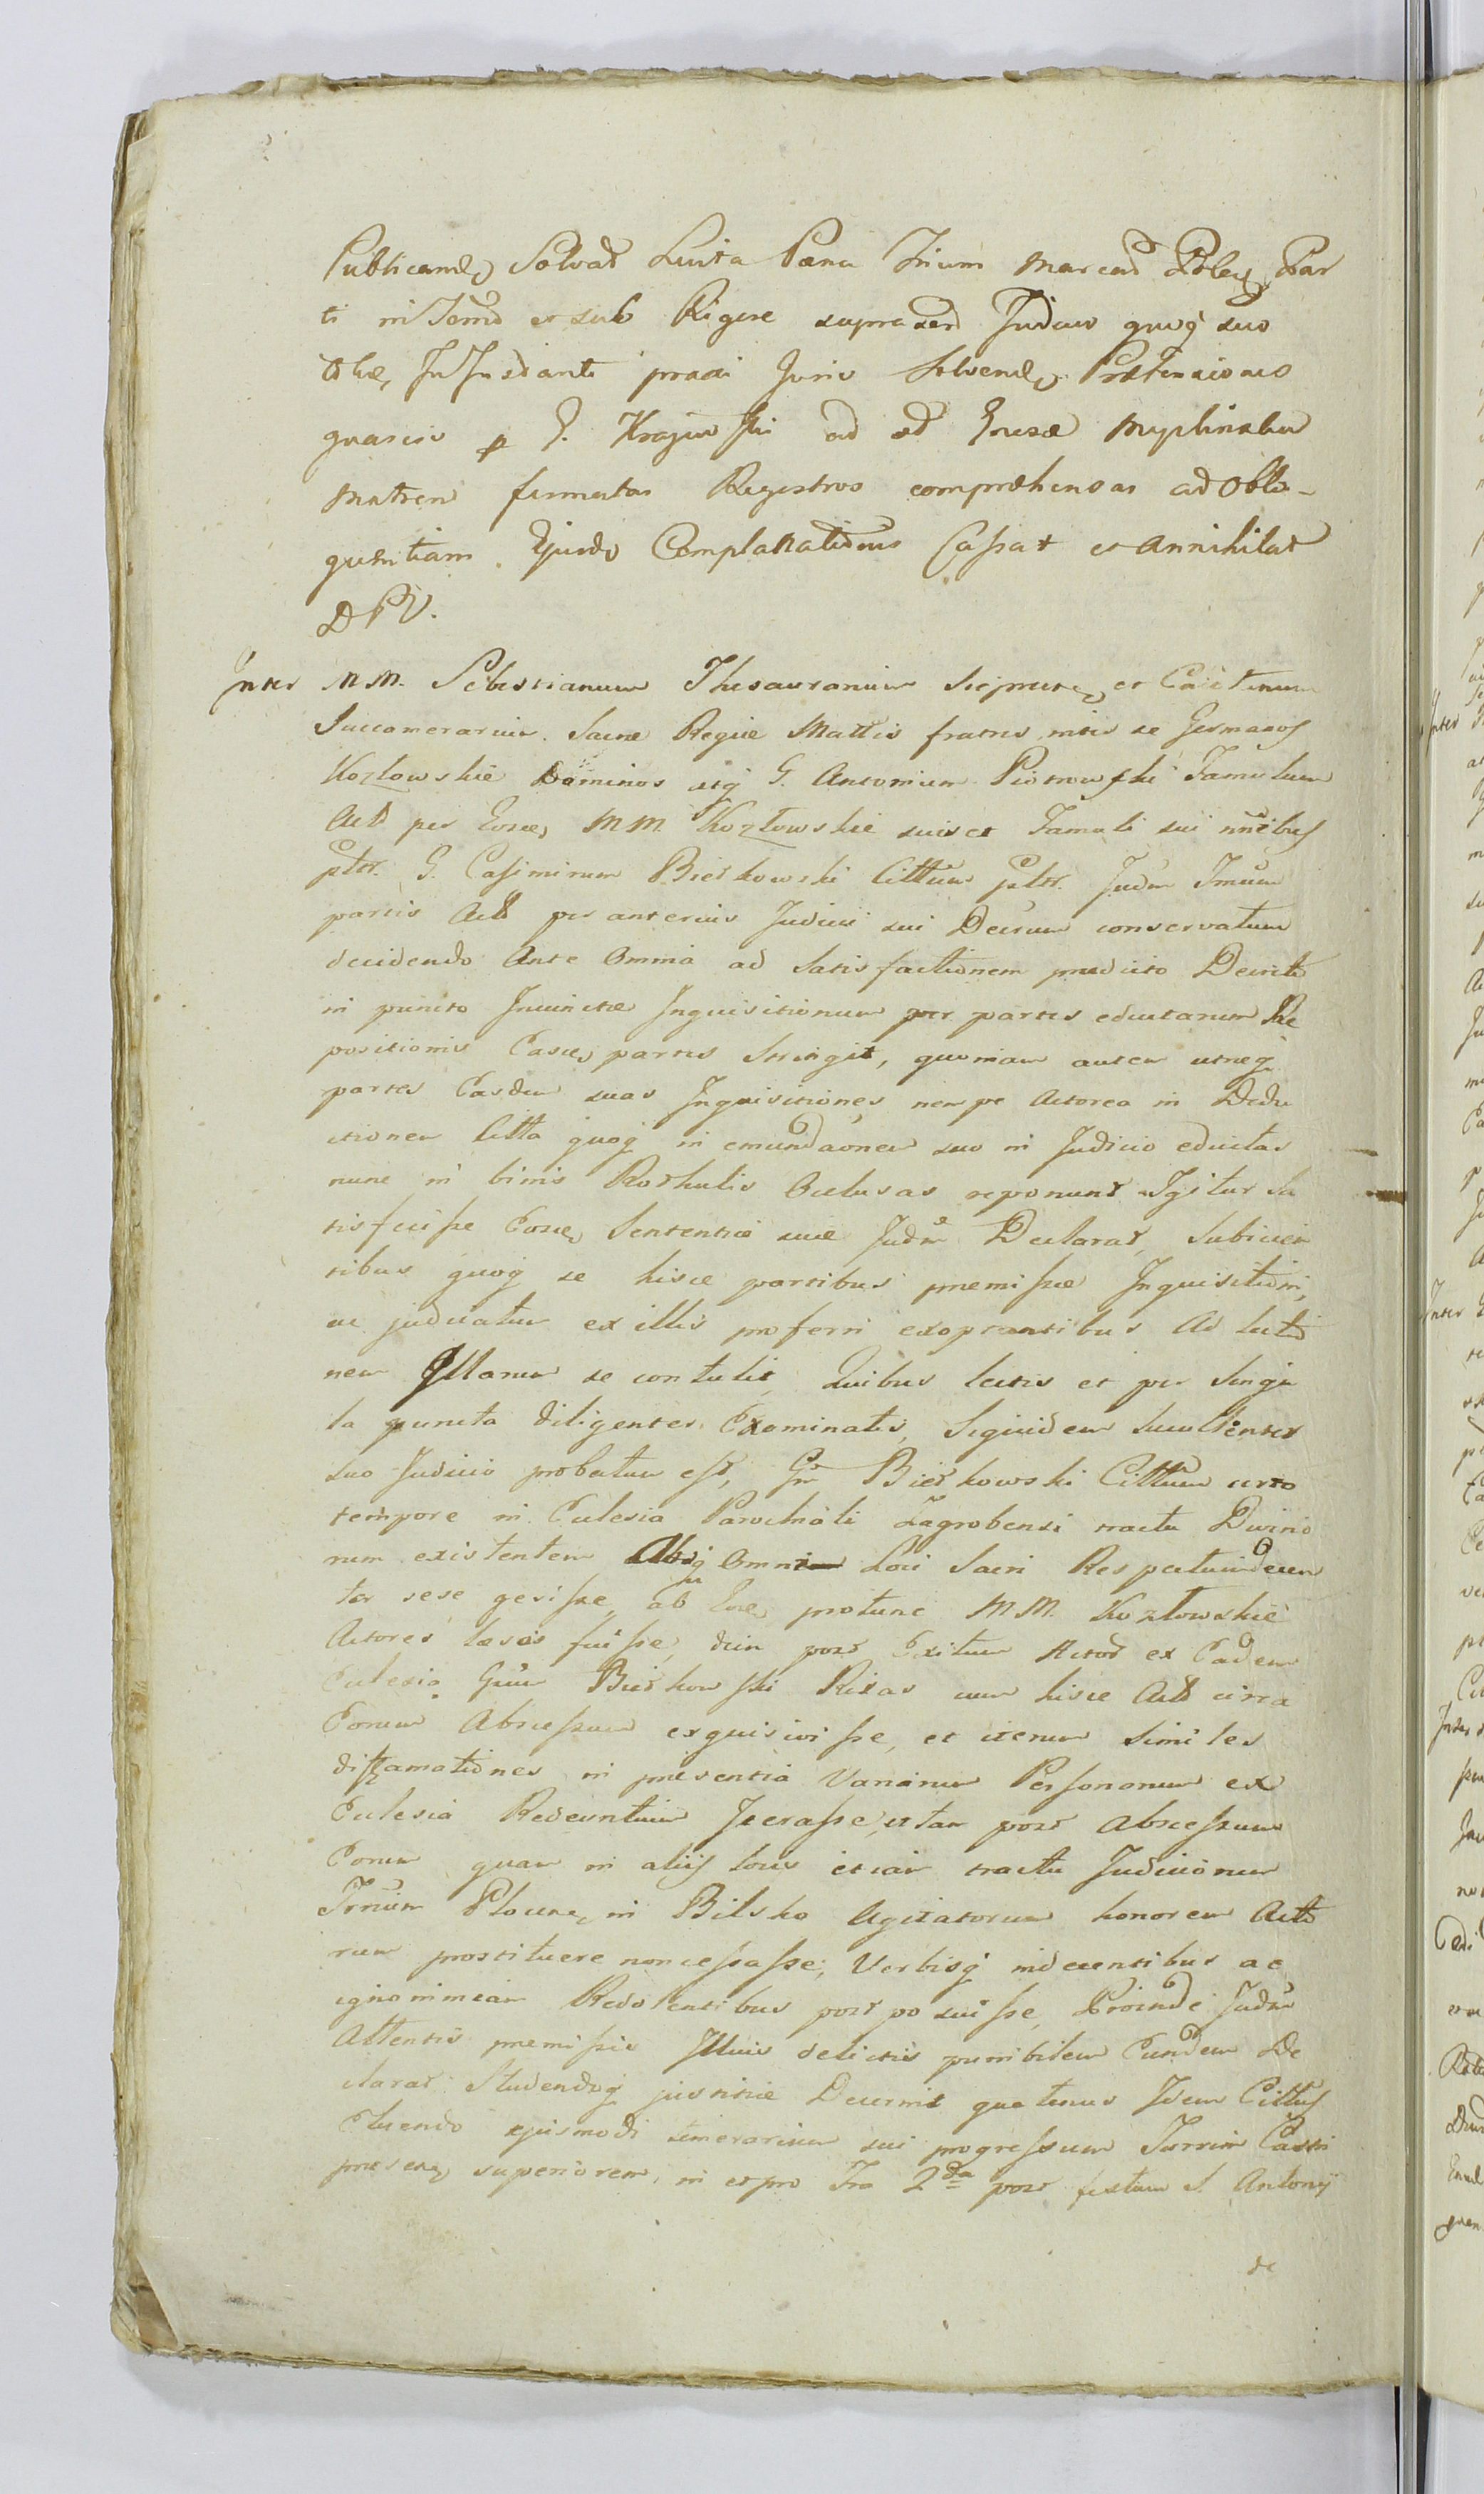 Publicand Solvat Luita Pœna Trium Marcar Polcz Par
ti in Termo et sub Rigore supra Judicio quoq suo
praxi Juris Solvend Prætensiones
quasvis p G. ad
matrem firmatas Registros comprehensas ad Obla-
quentiam Ejusd Complanationis Cassat et Annihilat
DPV.
Inter MM. Sebestianum Thesaurarium et Caietanum
Succamerarium Sacræ Regiæ Mattis fratres inter se Germanos
Kozłowskie Dominos atq G. Antonium Piotrowski Famulum
Act per MM Kozłowskie suis et Famuli sui nnibus
G. Casimirum Bieżkowski Cittum Judm
partis Act per anterius Judicii sui Decrum conservatum
decidendo Ante Omnia ad Satisfactionem prædicto Decreto
in puncto Inquisitionum per partes eductarum Re
positionis Easd partes Stringit, quoniam autem utræq
partes Easdem suas Inquisitiones nempe Actorea in Dedu
ctionem Citta quoq in emundaonem suo in Judicio eductas
nunc in binis Rothulis Oclusas reponunt Igitur Sa
tisfecisse Sententiæ suæ Judm Declarat, Subicien
tibus quoq se hisce partibus præmissæ Inquisitioni,
ac judicatum ex illis proferri exoptantibus Ad lectio
nem Illarum se contulit, Quibus lectis et per Singu
la puncta diligenter Examinatis, Siquidem Luculenter
suo Judicio probatum est, Gm Bieżkowski Cittum certo
tempore in Eclesia Parochiali Zagrobensi tractu Divino
rum existentem Absq Omni Loci Sacri Respectu indecen
ter sese gesisse, ab protunc MM. Kozłowskie
Actores læsos fuisse, dein post Exitum Actor ex Eadem
Eclesia Gum Bieżkowski Rixas cum hisce Act circa
Eorum Abscessum exquisivisse, et iterum similes
diffamationes in præsentia Variarum Personarum ex
Eclesia Redeuntium Jecrasse, et tam post Abscessum
Eorum quam in aliis locis etiam tractu Judiciorum
Trium Plocen in Bilsko Agitatorum honorem Acto
rum prostituere non cessasse, Verbisq indecentibus ac
ignominiam Redolentibus postposuisse, Proinde Judm
Attentis præmissis Illius delictis punibilem Eundem De
clarat Studendoq justitiæ Decernit quatenus Idem Cittus
Eluendo ejusmodi temerarium sui progressum Turrim Castri
præsen superiorem, in et pro Fra 2da post festum S. Antonij
de